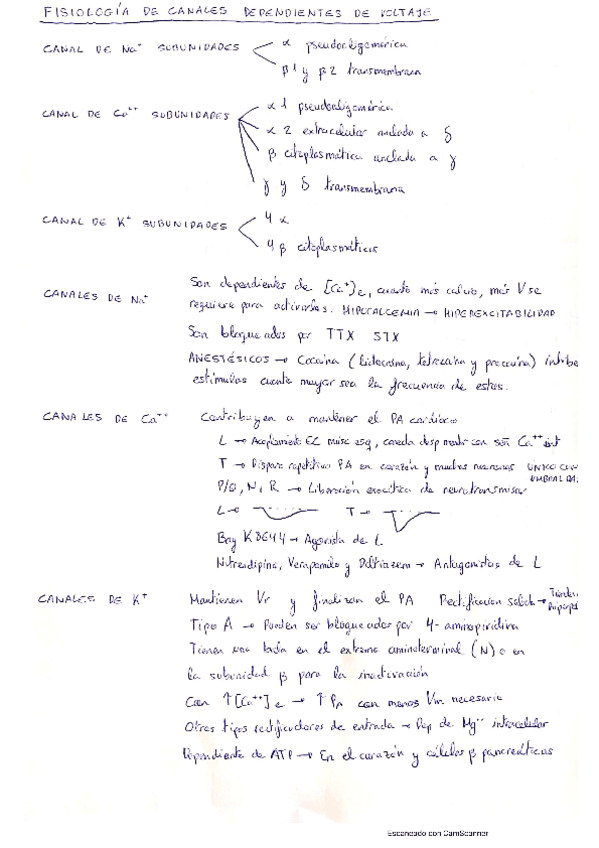 FISIOLOGÍA DE CANALES DEPENDIENTES DE VOLTAJE
CANAL DE Na⁺ SUBUNIDADES
α pseudooligomérica
β1 y β2 transmembrana
CANAL DE Ca⁺⁺ SUBUNIDADES
α1 pseudooligomérica
α2 extracelular anclada a δ
β citoplasmática anclada a γ
γ y δ transmembrana
CANAL DE K⁺ SUBUNIDADES
4 α
4 β citoplasmáticas
CANALES DE Na⁺
Son dependientes de [Ca⁺]e, cuanto más calcio, más V se
requiere para activarlos. HIPOCALCEMIA → HIPEREXCITABILIDAD
Son bloqueados por TTX STX
ANESTÉSICOS → Cocaína (lidocaína, tetracaína y procaína) inhibe
estímulos cuanto mayor sea la frecuencia de estos.
CANALES DE Ca⁺⁺
Contribuyen a mantener el PA cardíaco
L → Acoplamiento EC musc esq, canada desp
T → Disparo repetitivo PA en corazón y muchas neuronas ÚNICO CON
UMBRAL BAJ
P/Q, N, R → Liberación exocítica de neurotransmisor
L → T →
Bay K8644 → Agonista de L
Nitrendipina, Verapamilo y Diltiazem → Antagonistas de L
CANALES DE K⁺
Mantienen Vr y finalizan el PA Rectificación salida →
Tipo A → Pueden ser bloqueados por 4-aminopiridina
Tienen una bola en el extremo aminoterminal (N) o en
la subunidad β para la inactivación
Con ↑[Ca⁺⁺]e → ↑PA con menos Vm necesario
Otros tipos rectificadores de entrada → Dep de Mg⁺⁺ intracelular
Dependiente de ATP → En el corazón y células β pancreáticas
Escaneado con CamScanner